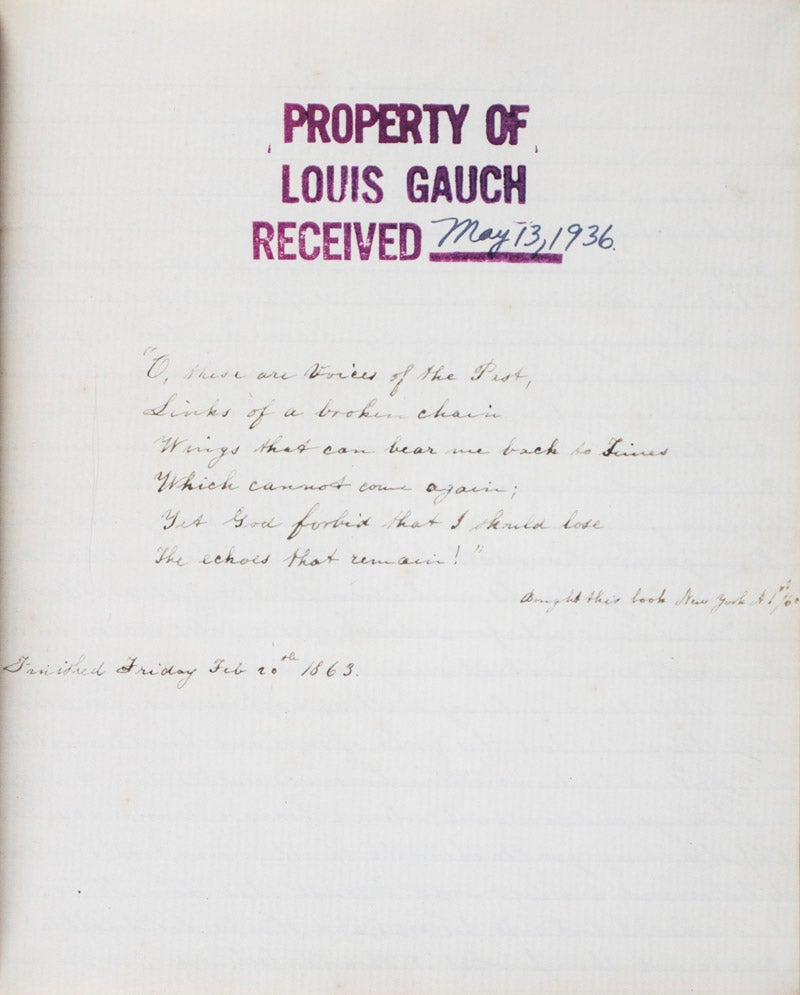 PROPERTY OF
LOUIS GAUCH
RECEIVED May 13, 1936.
"O, these are Voices of the Past,
Links of a broken chain
Wings that can bear me back to Times
Which cannot come again;
Yet God forbid that I should lose
The echoes that remain!"
Bought this book New York
Finished Friday Feb 20th 1863.